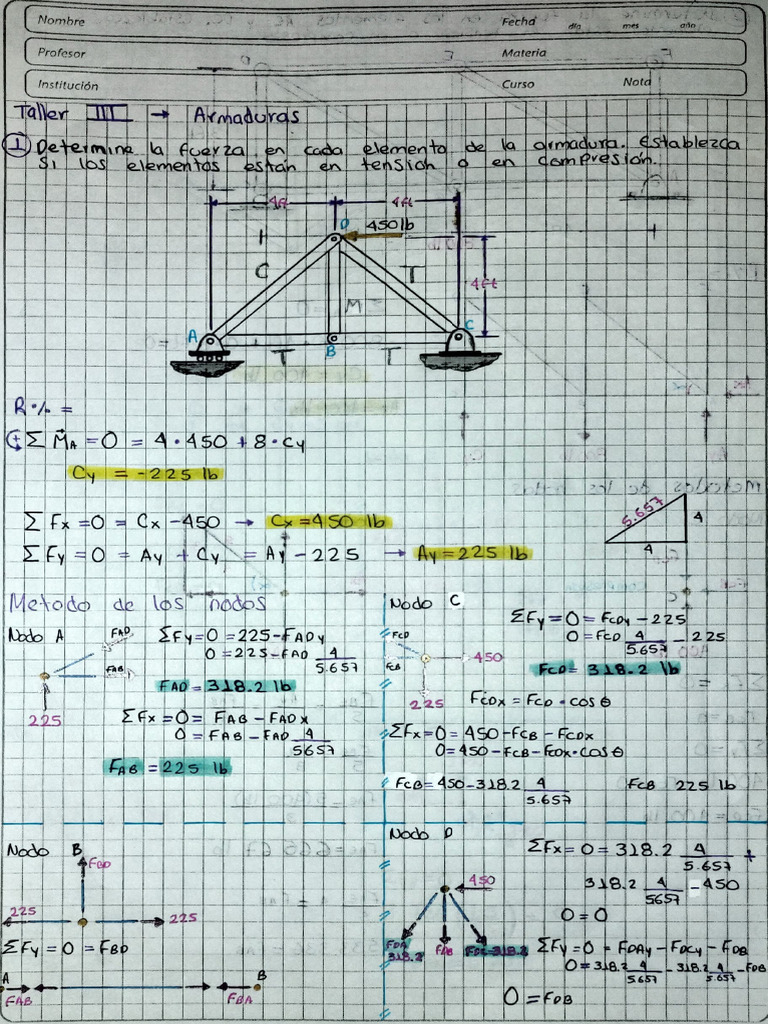 Nombre Fecha día mes año
Profesor Materia
Institución Curso Nota
Taller III → Armaduras
① Determine la fuerza en cada elemento de la armadura. Establezca
si los elementos están en tensión o en compresión.
4ft 4ft
D 450 lb
C T
4ft
M
A B C
T T
R•/. =
ΣM⃗A = 0 = 4•450 + 8•Cy
Cy = -225 lb
ΣFx = 0 = Cx - 450 → Cx = 450 lb
ΣFy = 0 = Ay + Cy = Ay - 225 → Ay = 225 lb
5.657
4
4
Metodo de los nodos
Nodo A
FAD
FAB
225
ΣFy = 0 = 225 - FADy
0 = 225 - FAD 4/5.657
FAD = 318.2 lb
ΣFx = 0 = FAB - FADx
0 = FAB - FAD 4/5657
FAB = 225 lb
Nodo C
FCD
FCB
450
225
ΣFy = 0 = FCDy - 225
0 = FCD 4/5.657 - 225
FCD = 318.2 lb
FCDX = FCD • cos θ
ΣFx = 0 = 450 - FCB - FCDX
0 = 450 - FCB - FCDX • cos θ
FCB = 450 - 318.2 4/5.657 FCB 225 lb
Nodo B
FBD
225 225
ΣFy = 0 = FBD
A B
FAB FBA
Nodo D
450
FDA
318.2
FAB
FDC=318.2
ΣFx = 0 = 318.2 4/5.657 +
318.2 4/5657 - 450
0 = 0
ΣFy = 0 = FDAy - FDCy - FDB
0 = 318.2 4/5.657 - 318.2 4/5.657 - FDB
0 = FDB